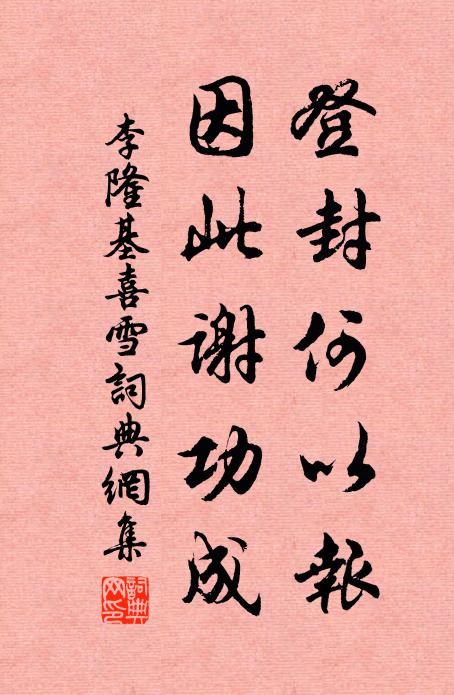 登封何以報
因此謝功成
李隆基喜雪詞典網集
詞典網印